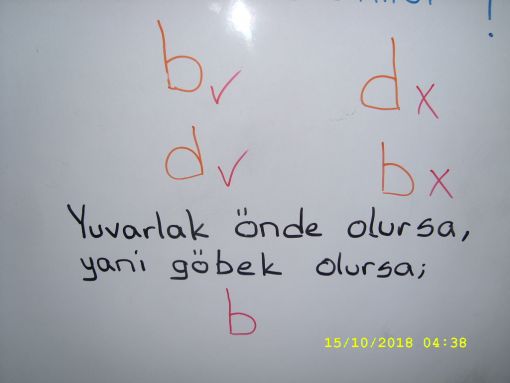 !
b✓ dx
d✓ bx
Yuvarlak önde olursa,
yani göbek olursa;
b
15/10/2018 04:38